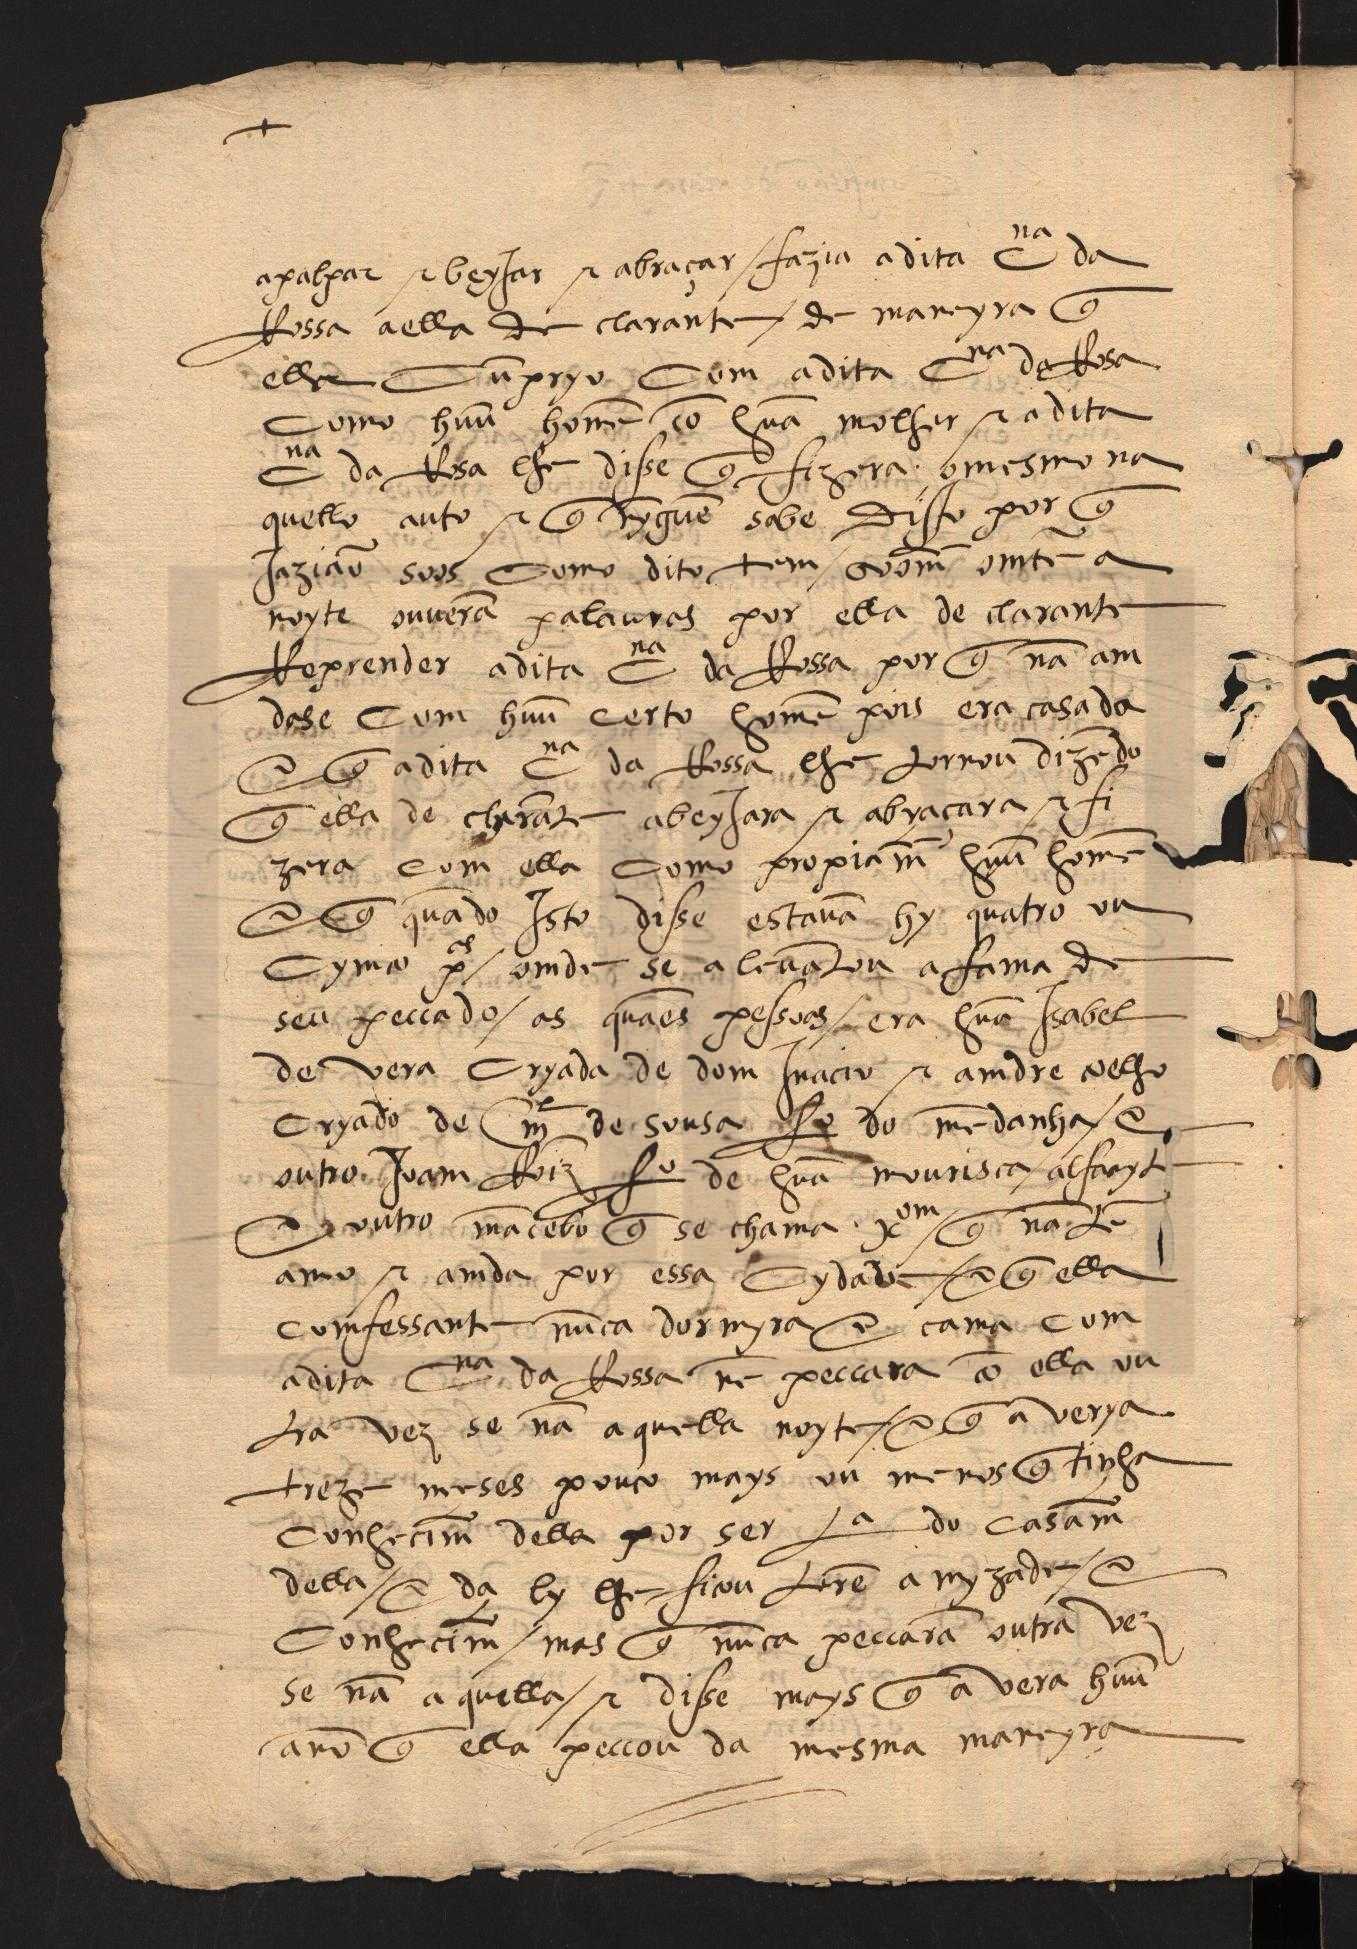 +
apalpar e beyJar e abraçar / fazia a dita Cna da
Rossa a ella de clarante / de maneyra q̃
ella Cũpryo Com a dita Cna da Rosa
Como huũ homẽ cõ huã molher e a dita
Cna da Rosa lhe disse q̃ fizera o mesmo na
quello auto e q̃ nynguẽ sabe disso por q̃
Jaziaõ soos Como dito tem / omtẽ a
noyte ouverã palavras por ella de clarante
Reprender a dita Cna da Rossa por q̃ nã am
dase Com huũ certo homẽ pois era casada
e q̃ a dita Cna da Rossa lhe tornou dizẽdo
q̃ ella de clarãte a beyJara e abraçara e fi
zera com ella Como propiamẽ huũ homẽ
e q̃ quãdo Isto disse estavã hy quatro ou
Cymco pas / omde se a levãtou a fama de
seu peccado / as quaẽs pessoas / era huã Isabel
de vera Cryada de dom Inacio e amdre coelho
Cryado de ml de sousa fo do mẽdanha / e
outro Joam Roiz fo de huã mourisca / alfayte
e outro mãcebo q̃ se chama xom / q̃ nã tẽ
amo e amda por essa Cydade / e q̃ ella
Comfessante nũca dormyra ẽ cama Com
a dita Cna da Rossa nẽ peccara cõ ella ou
tra vez se nã a quella noyte / e q̃ a verya
treze meses pouco mays ou menos q̃ tinha
Conhecimẽ della por ser ta do casamẽ
della / e da ly lhe ficou terẽ a myzade / e
Conhecimẽ / mas q̃ nũca peccarã outra vez
se nã a quella / e disse mays q̃ a vera huũ
ano q̃ ella peccou da mesma maneyra